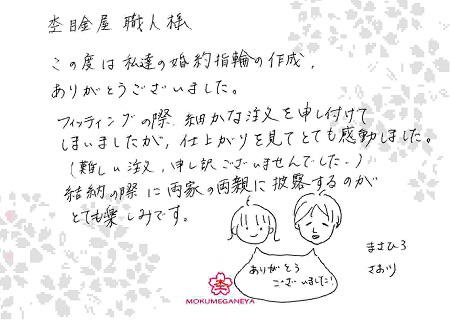 杢目金屋 職人様
この度は私達の婚約指輪の作成、
ありがとうございました。
フィッティングの際、細かな注文を申し付けて
しまいましたが、仕上がりを見てとても感動しました。
(難しい注文、申し訳ございませんでした。)
結納の際に両家の両親に披露するのが
とても楽しみです。
ありがとう
ございました!
まさひろ
さおり
MOKUMEGANEYA